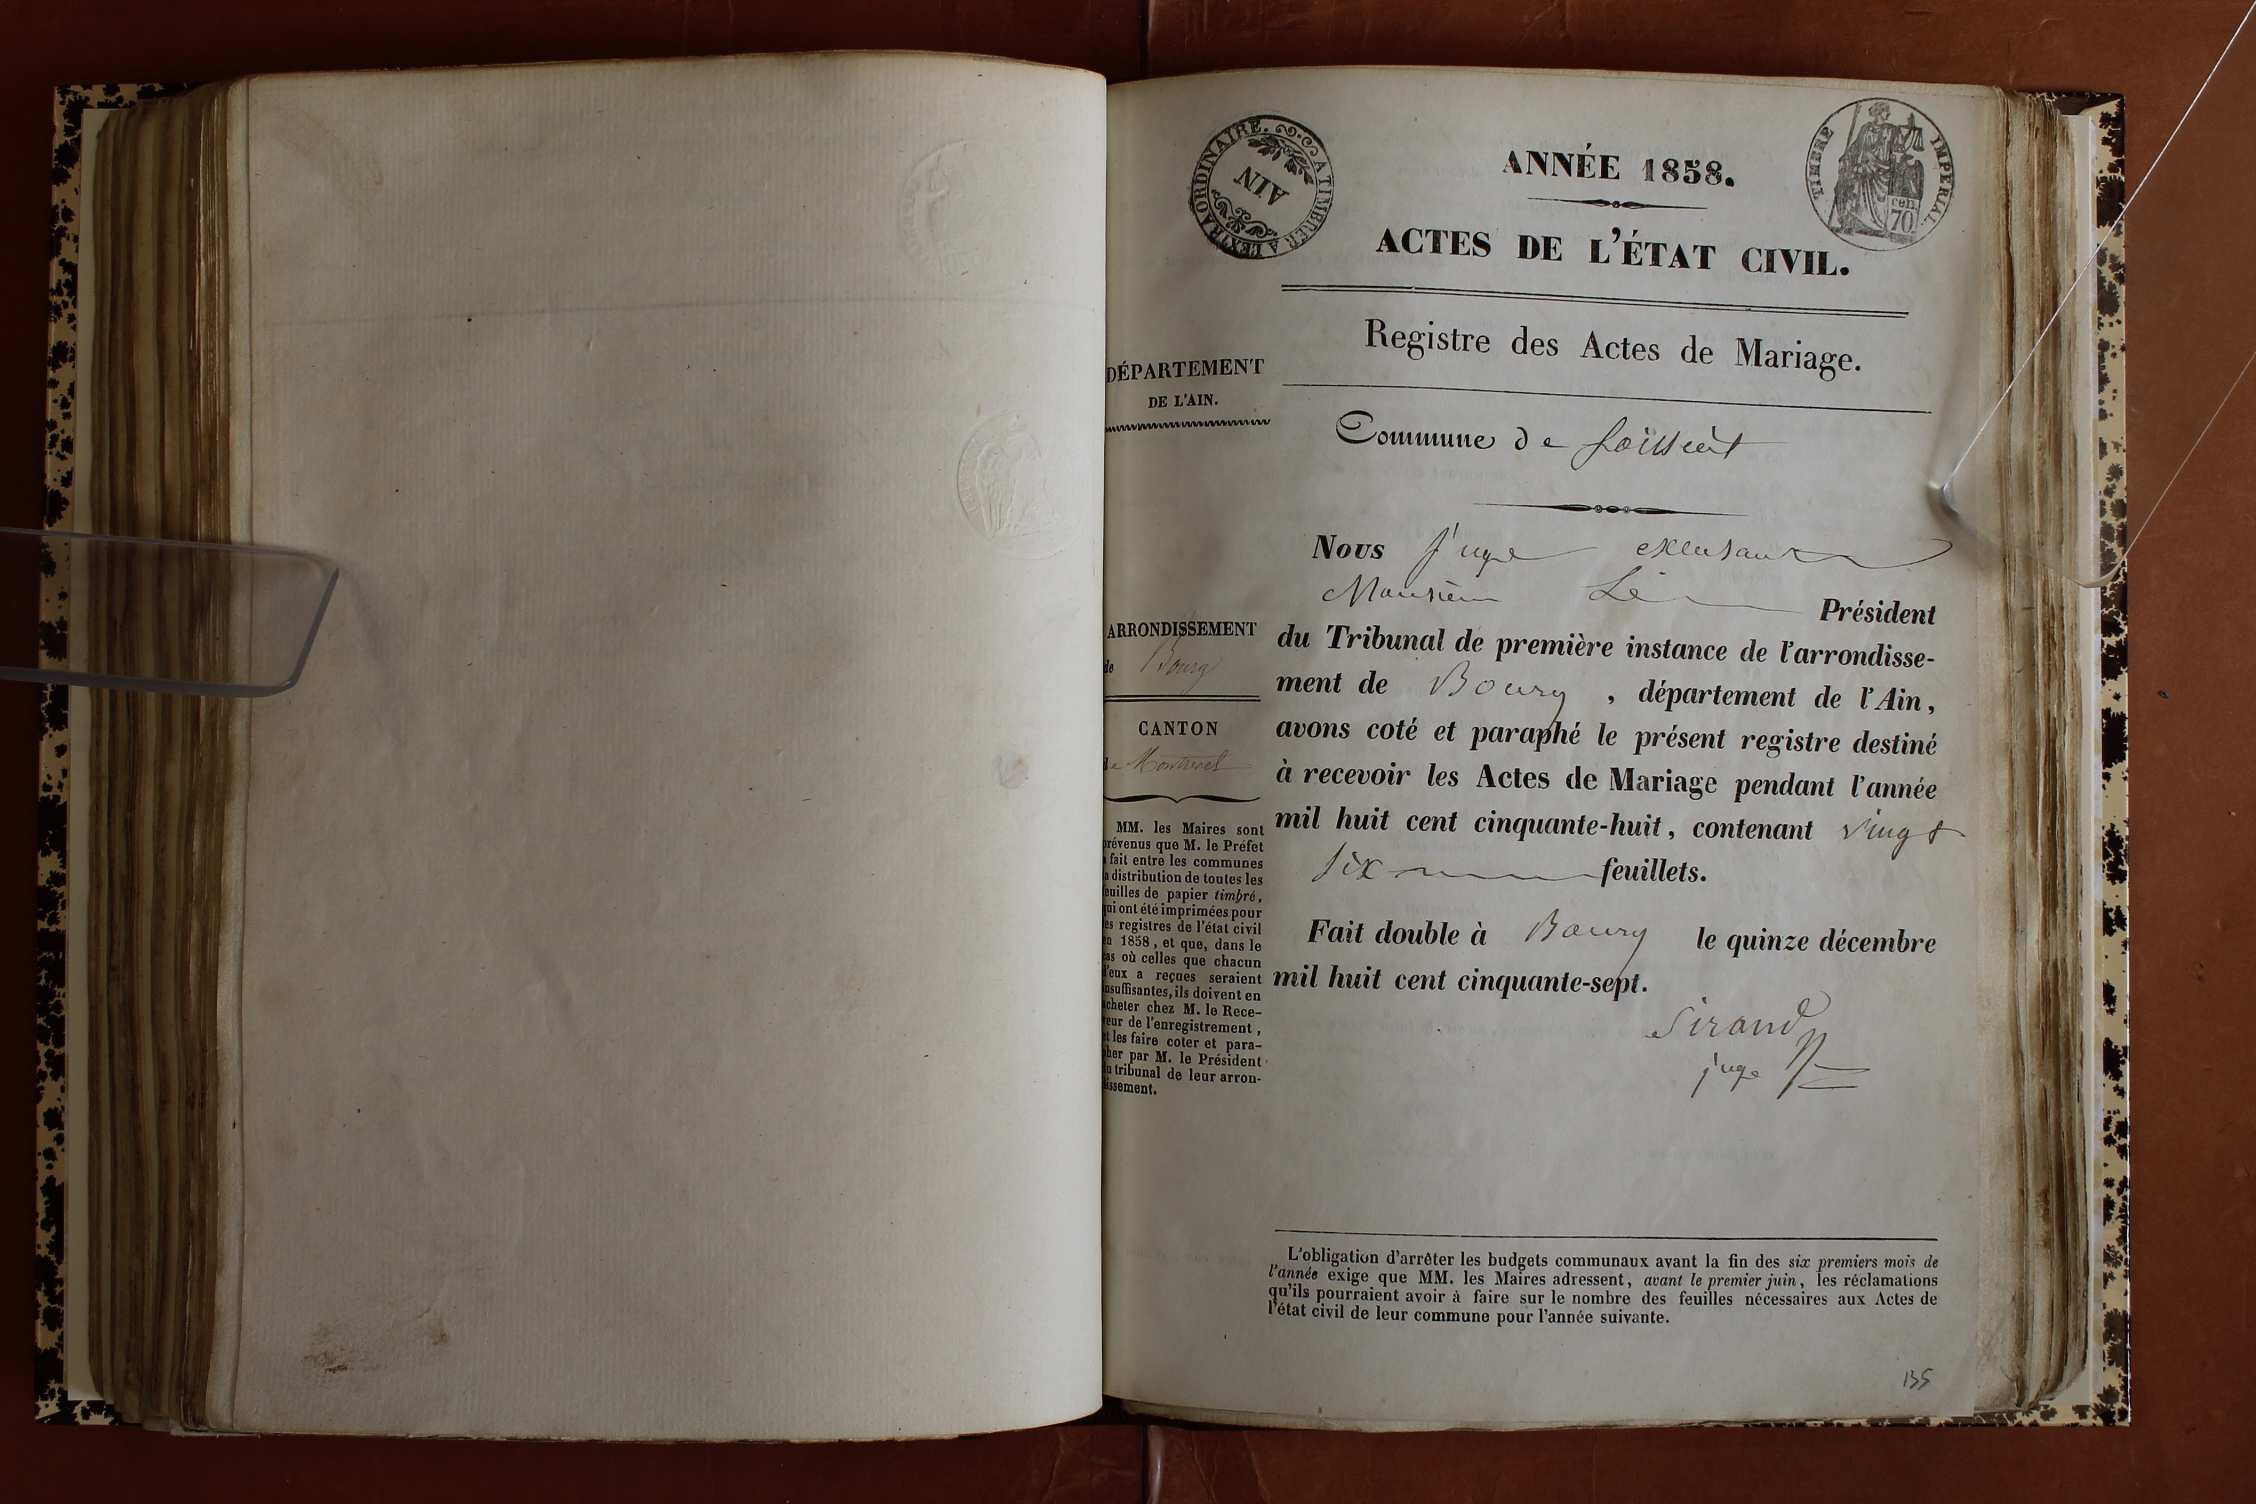 A TIMBRER A L'EXTRAORDINAIRE.
AIN
TIMBRE IMPÉRIAL.
cen.
70
ANNÉE 1858.
ACTES DE L'ÉTAT CIVIL.
Registre des Actes de Mariage.
Commune de Foissiat
DÉPARTEMENT
DE L'AIN.
ARRONDISSEMENT
de Bourg
CANTON
de Montrevel
MM. les Maires sont
prévenus que M. le Préfet
a fait entre les communes
la distribution de toutes les
feuilles de papier timbré,
qui ont été imprimées pour
les registres de l'état civil
en 1858, et que, dans le
cas où celles que chacun
d'eux a reçues seraient
insuffisantes, ils doivent en
acheter chez M. le Rece-
veur de l'enregistrement,
et les faire coter et para-
pher par M. le Président
du tribunal de leur arron-
dissement.
Nous juge
Monsieur Le Président
du Tribunal de première instance de l'arrondisse-
ment de Bourg, département de l'Ain,
avons coté et paraphé le présent registre destiné
à recevoir les Actes de Mariage pendant l'année
mil huit cent cinquante-huit, contenant vingt
six feuillets.
Fait double à Bourg le quinze décembre
mil huit cent cinquante-sept.
Sirand
juge
L'obligation d'arrêter les budgets communaux avant la fin des six premiers mois de
l'année exige que MM. les Maires adressent, avant le premier juin, les réclamations
qu'ils pourraient avoir à faire sur le nombre des feuilles nécessaires aux Actes de
l'état civil de leur commune pour l'année suivante.
135